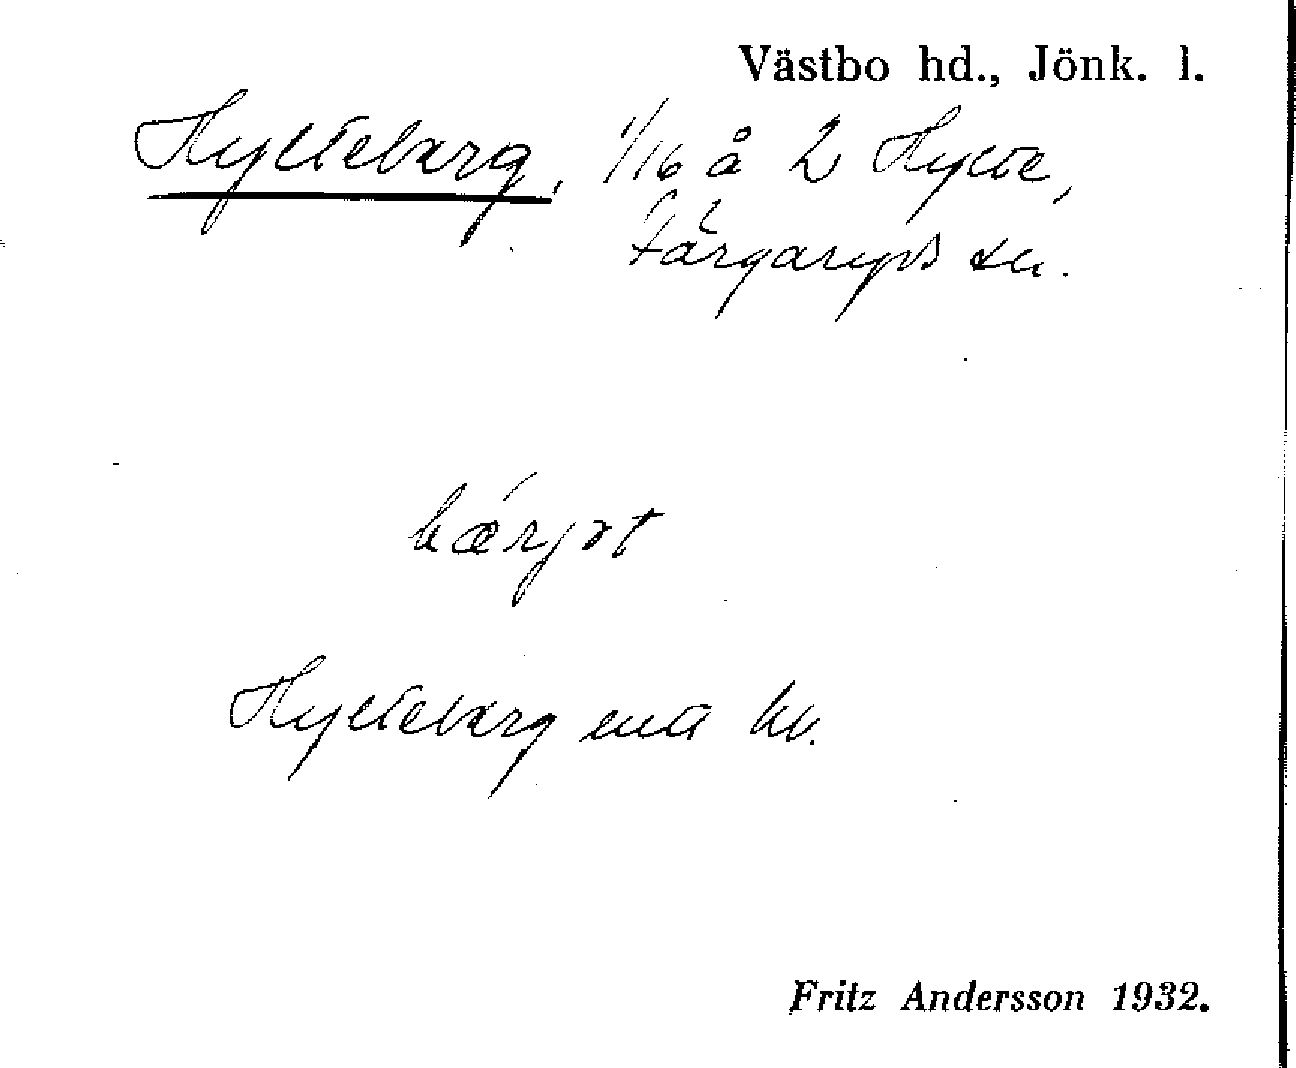 Västbo hd., Jönk. l.
Hylteberg, 1/16 å 2 Hylte,
Färgaryds sn.
bærjət
Hylteberg enl
Fritz Andersson 1932.